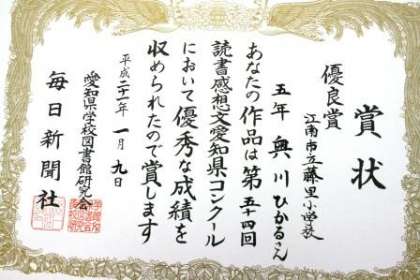 賞状
優良賞
江南市立藤里小学校
五年 奥川ひかるさん
あなたの作品は第五十四回
読書感想文愛知県コンクール
において優秀な成績を
収められたので賞します
平成二十一年一月九日
愛知県学校図書館研究会
毎日新聞社